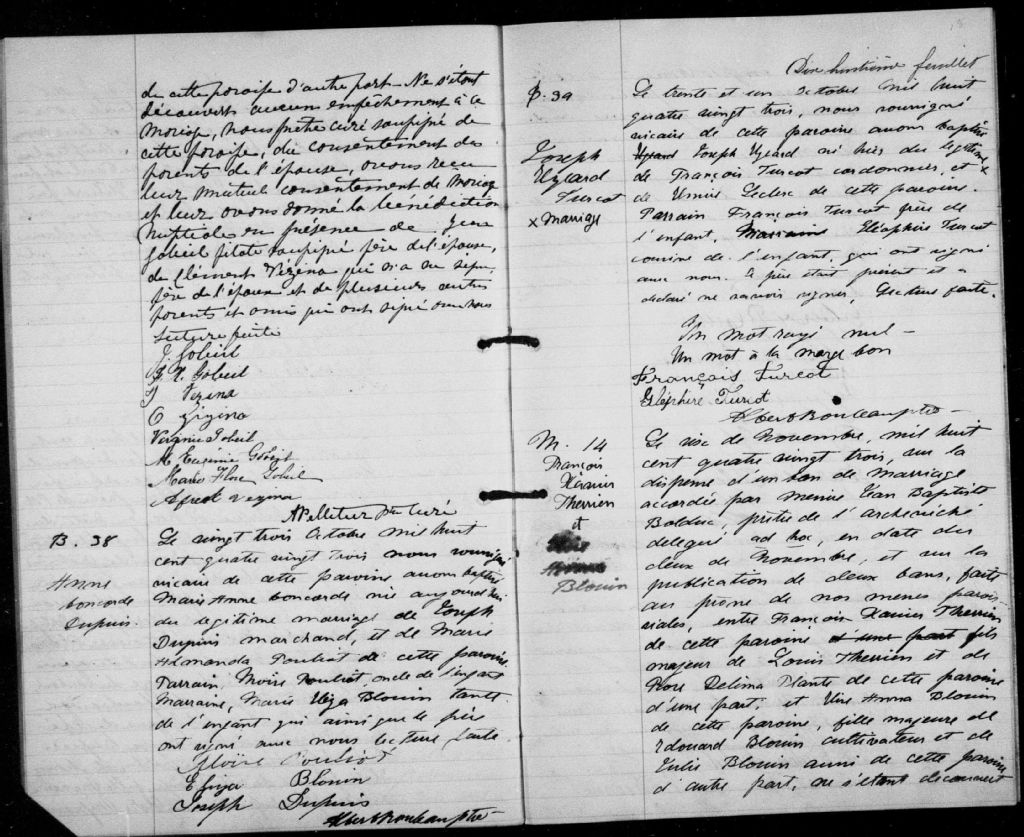 de cette paroisse d'autre part. Ne s'étant
découvert aucun empêchement à ce
Mariage, nous prêtre curé soussigné de
cette paroisse, du consentement des
parents de l'épouse, avons reçu
leur mutuel consentement de Mariage
et leur avons donné la bénédiction
Nuptiale en présence de Jean
Gobeil pilote soussigné père de l'épouse,
de Clément Vezina qui n'a su signer
père de l'époux et de plusieurs autres
parents et amis qui ont signé avec nous
Lecture faite
J. Gobeil
Gobeil
Vezina
O Vezina
Virginie Gobeil
M Eugénie Gobeil
Marie Flore Gobeil
Alfred Vezina
APelletier Ptre Curé
B. 38
Anne
Concorde
Dupuis.
Le vingt trois Octobre mil huit
cent quatre vingt trois nous soussigné
vicaire de cette paroisse avons baptisé
Marie Anne Concorde née aujourd'hui
du légitime mariage de Joseph
Dupuis marchand, et de Marie
Edmanda Pouliot de cette paroisse.
Parrain, Moïse Pouliot, oncle de l'enfant
Marraine, Marie Blouin tante
de l'enfant qui ainsi que le père
ont signé avec nous lecture faite
Moïse Pouliot
Blouin
Joseph Dupuis
Albert Rouleau ptre
Dix huitième feuillet
B. 39
Joseph
Uzeard
Turcot
x Marriage
Le trente et un Octobre mil huit
quatre vingt trois, nous soussigné
vicaire de cette paroisse avons baptisé
Uzeard Joseph Uzeard né hier du légitime x
de François Turcot cordonnier, et
de Leclerc de cette paroisse.
Parrain François Turcot père de
l'enfant, Marraine Eléophire Turcot
cousine de l'enfant, qui ont signé
avec nous. Le père était présent et a
déclaré ne savoir signer, Lecture faite.
Un mot rayé nul —
Un mot à la marge bon
François Turcot
Turcot
Albert Rouleau ptre —
M. 14
François
Xavier
Therrien
et
Anna
Blouin
Le six de Novembre, mil huit
cent quatre vingt trois, vu la
dispense d'un ban de marriage
accordée par Jean Baptiste
Bolduc, prêtre de l'archevêché
délégué ad hoc, en date du
deux de Novembre, et vu la
publication de deux bans, faite
au prône de nos messes parois-
siales, entre François Xavier Therrien
de cette paroisse d'une part fils
majeur de Louis Therrien et de
Rose Delima Plante de cette paroisse
d'une part, et Anna Blouin
de cette paroisse, fille majeure de
Edouard Blouin cultivateur et de
Julie Blouin aussi de cette paroisse
d'autre part, ne s'étant découvert